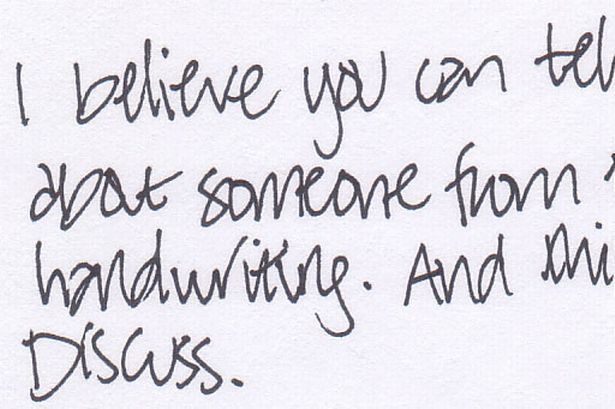 I believe you can tel
about someone from
handwriting. And
Discuss.